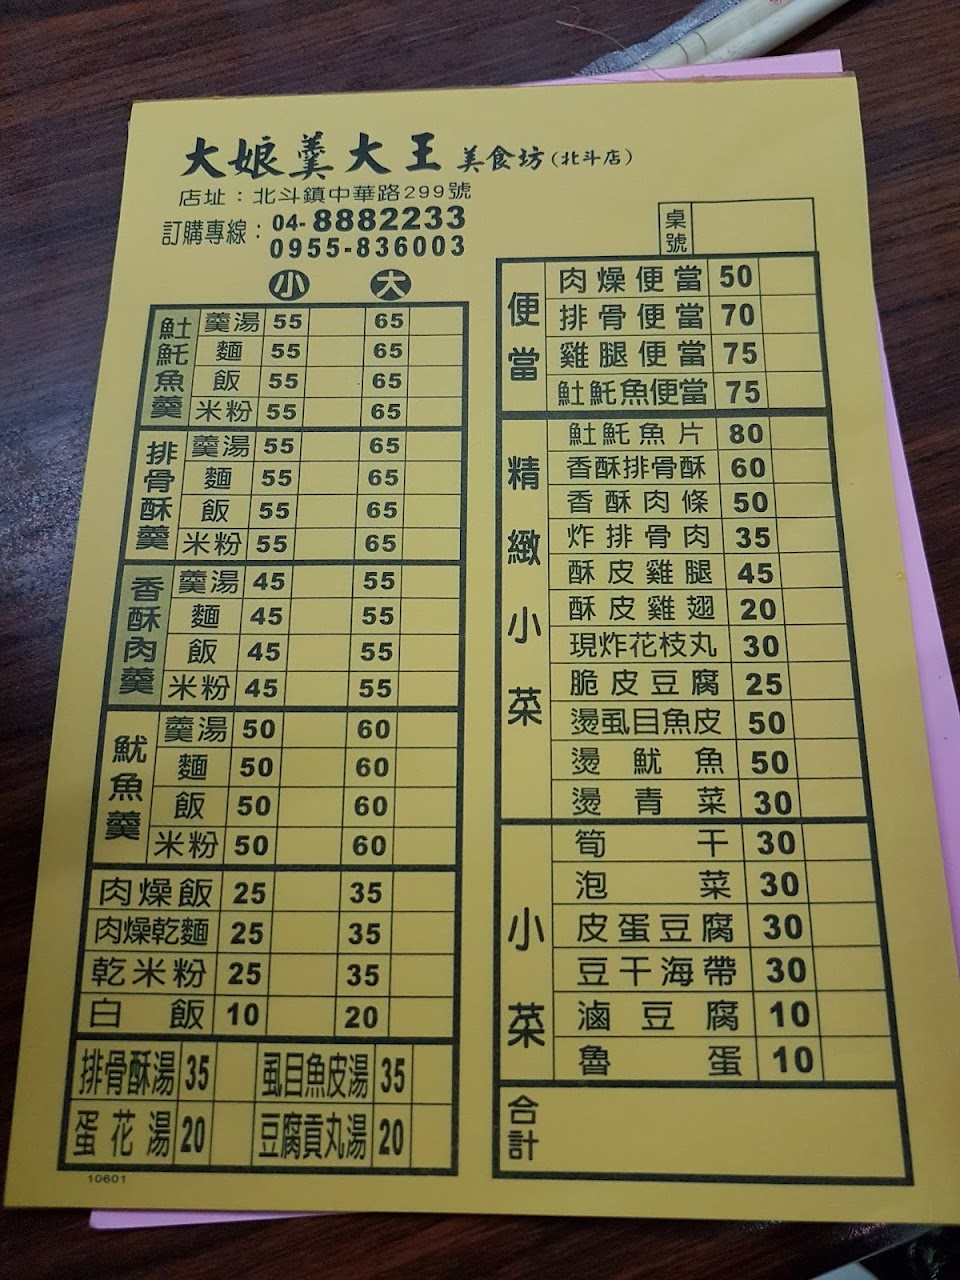 大娘羹大王 美食坊(北斗店)
店址：北斗鎮中華路299號
訂購專線：04-8882233
0955-836003
小 大
𩵚魠魚羹
羹湯 55 65
麵 55 65
飯 55 65
米粉 55 65
排骨酥羹
羹湯 55 65
麵 55 65
飯 55 65
米粉 55 65
香酥肉羹
羹湯 45 55
麵 45 55
飯 45 55
米粉 45 55
魷魚羹
羹湯 50 60
麵 50 60
飯 50 60
米粉 50 60
肉燥飯 25 35
肉燥乾麵 25 35
乾米粉 25 35
白飯 10 20
排骨酥湯 35 虱目魚皮湯 35
蛋花湯 20 豆腐貢丸湯 20
10601
桌號
便當
肉燥便當 50
排骨便當 70
雞腿便當 75
𩵚魠魚便當 75
精緻小菜
𩵚魠魚片 80
香酥排骨酥 60
香酥肉條 50
炸排骨肉 35
酥皮雞腿 45
酥皮雞翅 20
現炸花枝丸 30
脆皮豆腐 25
燙虱目魚皮 50
燙魷魚 50
燙青菜 30
小菜
筍干 30
泡菜 30
皮蛋豆腐 30
豆干海帶 30
滷豆腐 10
魯蛋 10
合計